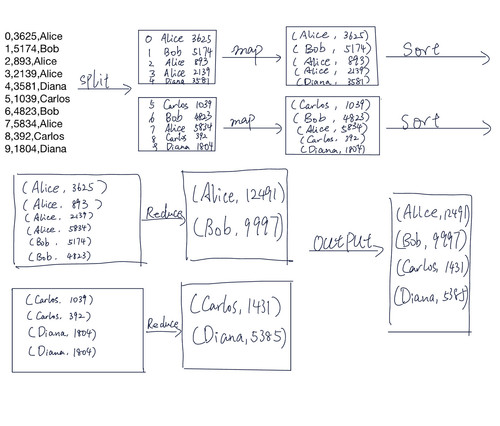 0,3625,Alice
1,5174,Bob
2,893,Alice
3,2139,Alice
4,3581,Diana
5,1039,Carlos
6,4823,Bob
7,5834,Alice
8,392,Carlos
9,1804,Diana
split
0 Alice 3625
1 Bob 5174
2 Alice 893
3 Alice 2139
4 Diana 3581
map
(Alice, 3625)
(Bob, 5174)
(Alice, 893)
(Alice, 2139)
(Diana, 3581)
Sort
5 Carlos 1039
6 Bob 4823
7 Alice 5834
8 Carlos 392
9 Diana 1804
map
(Carlos, 1039)
(Bob, 4823)
(Alice, 5834)
(Carlos, 392)
(Diana, 1804)
Sort
(Alice, 3625)
(Alice. 893)
(Alice. 2139)
(Alice. 5834)
(Bob. 5174)
(Bob. 4823)
Reduce
(Alice, 12491)
(Bob, 9997)
(Carlos. 1039)
(Carlos. 392)
(Diana. 1804)
(Diana. 1804)
Reduce
(Carlos, 1431)
(Diana, 5385)
output
(Alice, 12491)
(Bob, 9997)
(Carlos, 1431)
(Diana, 5385)